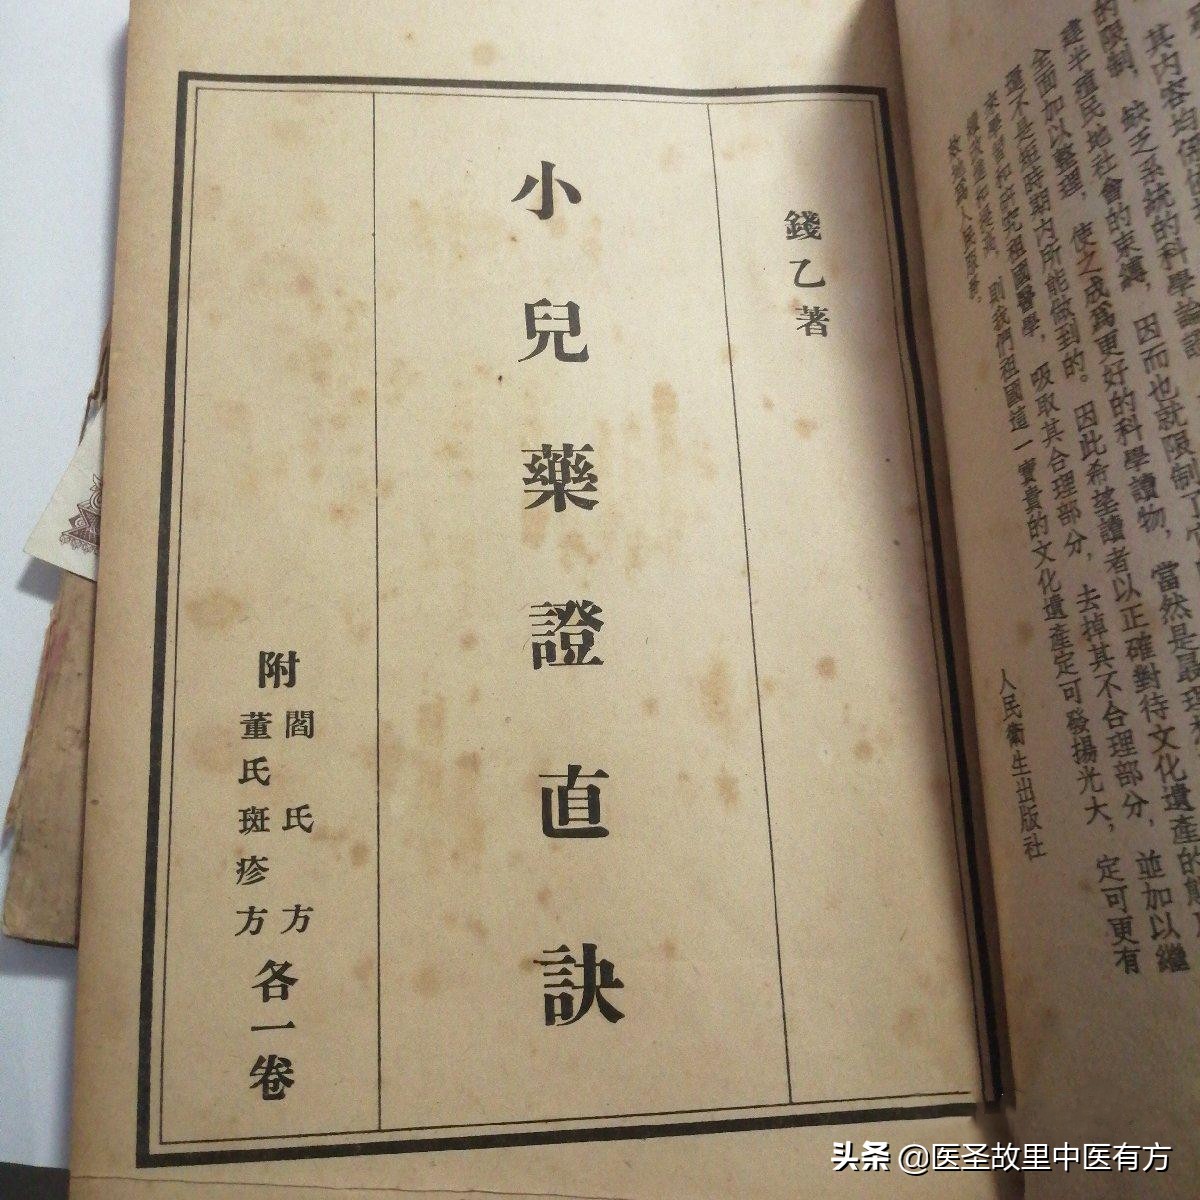 其內容均係
的限制，缺乏系統的科學論
建半殖民地社會的束縛，因而也就限制了
全面加以整理，使之成為更好的科學讀物，當然是最理
還不是短時期內所能做到的。因此希望讀者以正確對待文化遺產的態
來學習和研究祖國醫學，吸取其合理部分，去掉其不合理部分，並加以繼
則我們祖國這一寶貴的文化遺產定可發揚光大，定可更有
效地為人民服務。
人民衛生出版社
錢乙著
小兒藥證直訣
附
閻氏方
董氏斑疹方
各一卷
头条 @医圣故里中医有方